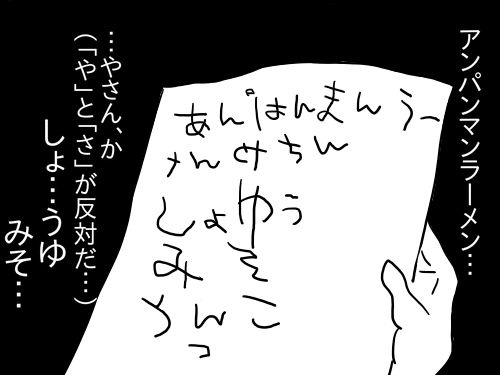 アンパンマンラーメン…
あんぱんまんうー
しょゆう
みそ
…やさん、か
(「や」と「さ」が反対だ…)
しょ…うゆ
みそ…